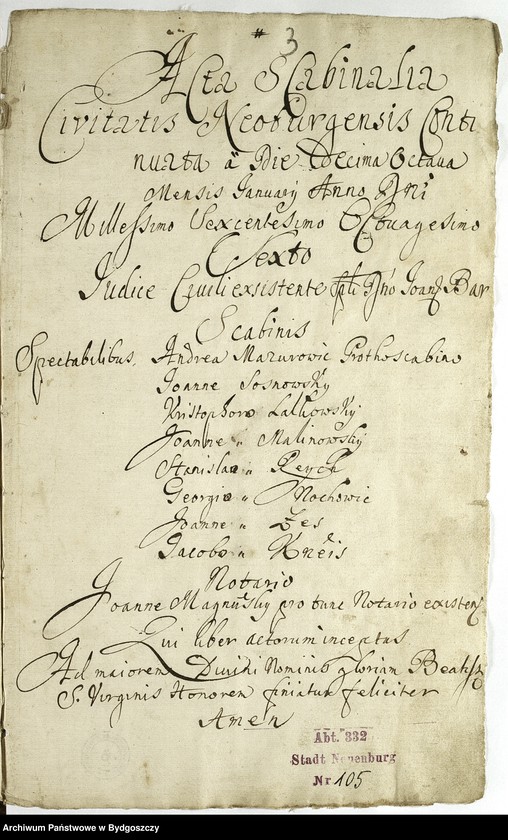 # 3
Acta Scabinalia
Civitatis Neoburgensis Conti
nuata a Die Decima Octava
Mensis January Anno Dni
Millessimo Sexcentesimo Octuagesimo
Sexto
Judice Civili existente Joan Bar
Scabinis
Spectabilibus, Andrea Mazurowic Prothoscabino
Joanne Sosnowsky
Kristophoro Lalkowsky
Joanne " Malinowsky
Stanislao " Reych
Georgio " Nochowic
Joanne " Zes
Jacobo " Kneis
Notario
Joanne Magnusky pro tunc Notario existen
Qui liber actorum inceptus
Ad maiorem Divini Nominis gloriam Beatiss
S. Virginis Honorem finiatur feliciter
Amen
Abt. 332
Stadt Neuenburg
Nr 105
Archiwum Państwowe w Bydgoszczy